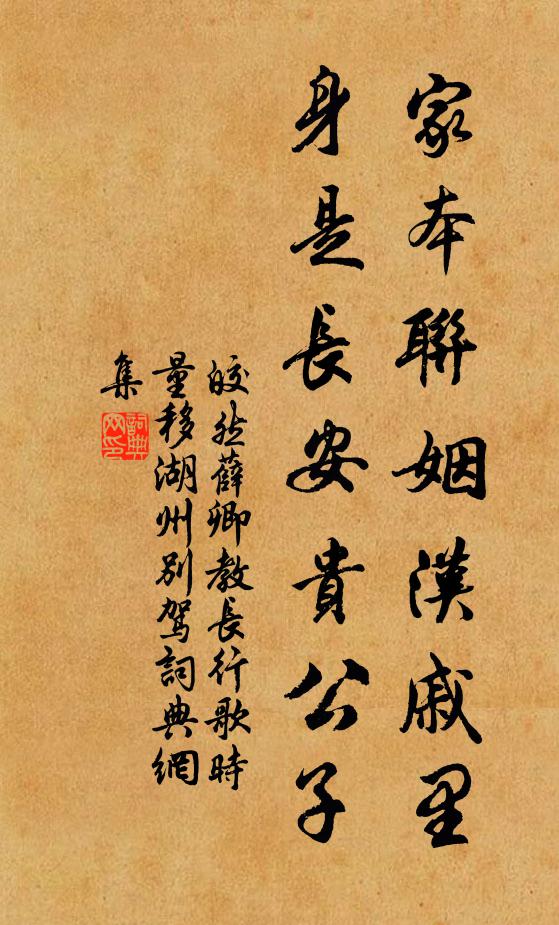 家本聯姻漢戚里
身是長安貴公子
皎然薛卿教長行歌時
量移湖州別駕詞典網
集
詞典
网印